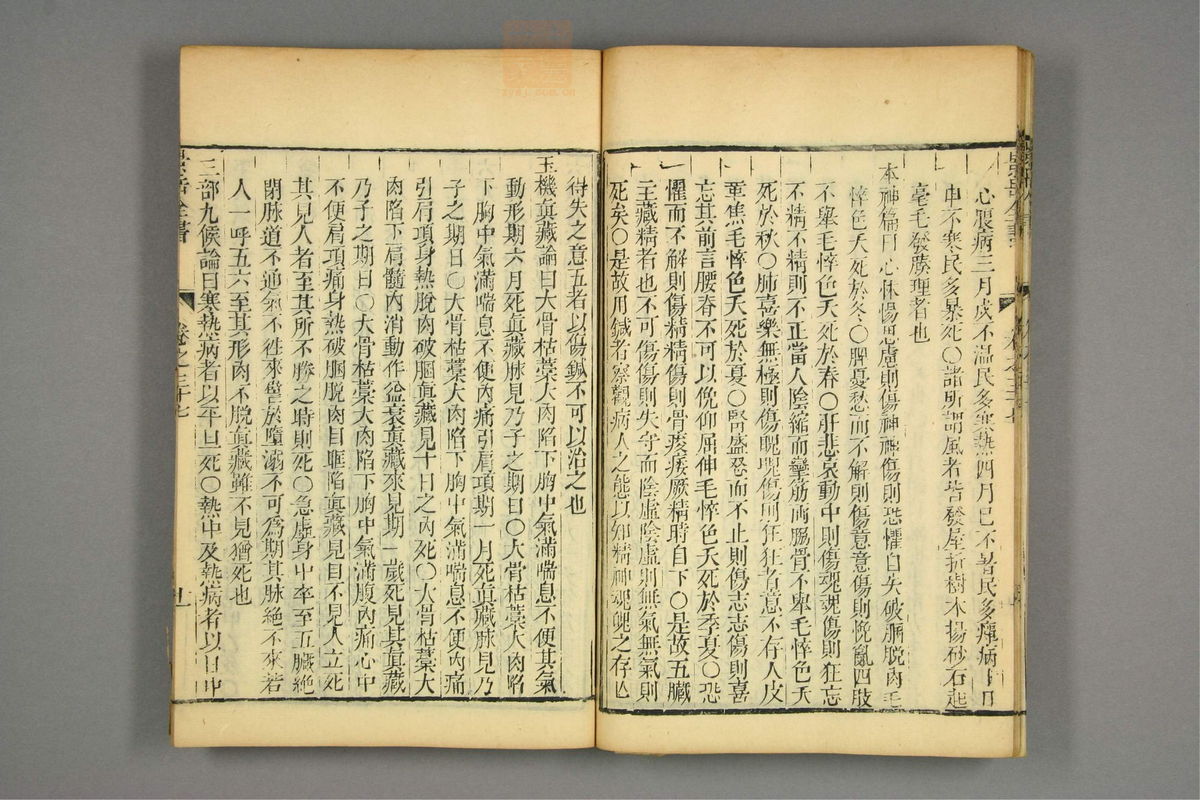 心脹病三月戌不溫民多寒熱四月巳不暑民多癉病十日
申不寒民多暴死○諸所謂風者皆發屋折樹木揚砂石起
毫毛發腠理者也
本神篇曰心怵惕思慮則傷神神傷則恐懼自失破䐃脫肉毛
悴色夭死於冬○脾憂愁而不解則傷意意傷則悗亂四肢
不舉毛悴色夭死於春○肝悲哀動中則傷魂魂傷則狂忘
不精不精則不正當人陰縮而攣筋兩脇骨不舉毛悴色夭
死於秋○肺喜樂無極則傷魄魄傷則狂狂者意不存人皮
革焦毛悴色夭死於夏○腎盛怒而不止則傷志志傷則喜
忘其前言腰脊不可以俛仰屈伸毛悴色夭死於季夏○恐
懼而不解則傷精精傷則骨痠痿厥精時自下○是故五臟
主藏精者也不可傷傷則失守而陰虛陰虛則無氣無氣則
死矣○是故用鍼者察觀病人之態以知精神魂魄之存亡
得失之意五者以傷鍼不可以治之也
玉機眞藏論曰大骨枯藁大肉陷下胸中氣滿喘息不便其氣
動形期六月死眞藏脉見乃子之期日○大骨枯藁大肉陷
下胸中氣滿喘息不便內痛引肩項期一月死眞藏脉見乃
子之期日○大骨枯藁大肉陷下胸中氣滿喘息不便內痛
引肩項身熱脫肉破䐃眞藏見十日之內死○大骨枯藁大
肉陷下肩髓內消動作益衰眞藏來見期一歲死見其眞藏
乃子之期日○大骨枯藁大肉陷下胸中氣滿腹內痛心中
不便肩項痛身熱破䐃脫肉目匪陷眞藏見目不見人立死
其見人者至其所不勝之時則死○急虛身中卒至五臟絶
閉脉道不通氣不徃來譬於墮溺不可爲期其脉絶不來若
人一呼五六至其形肉不脫眞藏雖不見猶死也
三部九候論曰寒熱病者以平旦死○熱中及熱病者以日中
景岳全書
卷之三十七